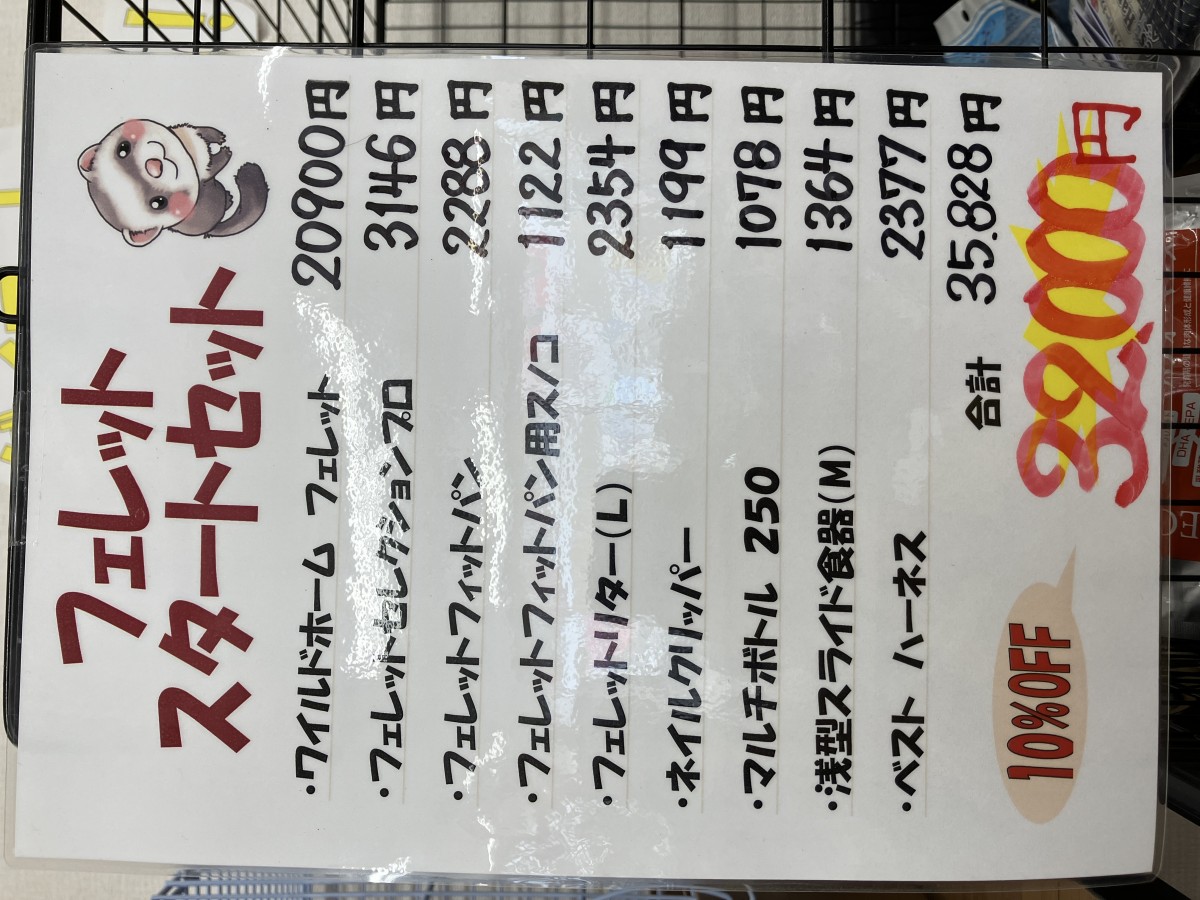 フェレット
スタートセット
・ワイルドホーム フェレット 20900円
・フェレットセレクションプロ 3146円
・フェレットフィットパン 2288円
・フェレットフィットパン用スノコ 1122円
・フェレットリター(L) 2354円
・ネイルクリッパー 1199円
・マルチボトル 250 1078円
・浅型スライド食器(M) 1364円
・ベスト ハーネス 2377円
合計 35.828円
10%OFF 32,000円
DHA EPA